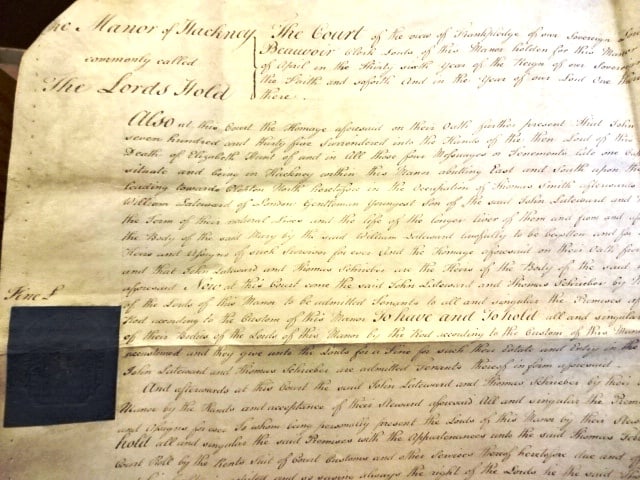 he Manor of Hackney
commonly called
The Lords Hold
The Court of the view of Frankpledge of our Sovereign
Beauvoir Clerk Lords of this Manor holden for this Manor
of April in the Thirty sixth Year of the Reign of our Sovereign
the Faith and soforth And in the Year of our Lord One
there
Also at this Court the Homage aforesaid on their Oath further present That John
seven hundred and thirty five Surrendered into the Hands of the then Lord of this
Death of Elizabeth Hunt of and in All those four Messuages or Tenements late one
situate and being in Hackney within this Manor abutting East and South upon the
leading towards Clapton North heretofore in the Occupation of Thomas Smith afterwards
William Lateward of London Gentleman Youngest Son of the said John Lateward and
the Term of their natural Lives and the life of the longer liver of them and from and
the Body of the said Mary by the said William Lateward lawfully to be begotten and for
Heirs and Assigns of such Survivor for ever And the Homage aforesaid on their Oath
and that John Lateward and Thomas Schrieber are the Heirs of the Body of the said
aforesaid Now at this Court come the said John Lateward and Thomas Schrieber by
Fine £
of the Lords of this Manor to be admitted Tenants to all and singular the Premises
Rod according to the Custom of this Manor To have and To hold all and singular
of their Bodies of the Lords of this Manor by the Rod according to the Custom of this Manor
accustomed and they give unto the Lords for a Fine for such their Estate and Entry in the
John Lateward and Thomas Schrieber are admitted Tenants thereof in form aforesaid
And afterwards at this Court the said John Lateward and Thomas Schrieber by their
Manor by the Hands and acceptance of their Steward aforesaid All and singular the
and Assigns for ever To whom being personally present the Lords of this Manor by their
hold all and singular the said Premises with the Appurtenances unto the said Thomas
Court Roll by the Rents Suit of Court Customs and other Services therefore heretofore due and
always the right of the Lords he the said